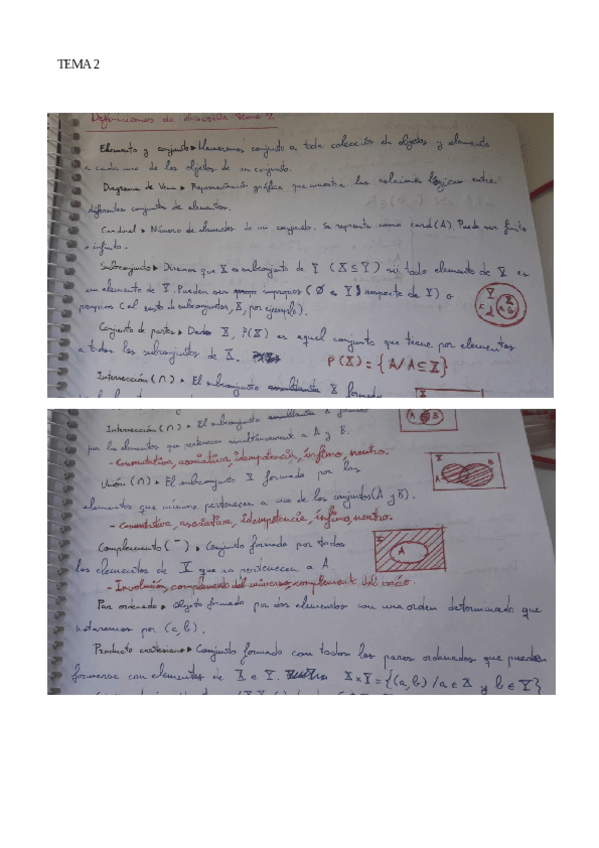 TEMA 2
Definiciones de discreta tema 2
Elemento y conjunto ▸ Llamaremos conjunto a toda colección de objetos y elemento
a cada uno de los objetos de un conjunto.
Diagrama de Venn ▸ Representación gráfica que muestra las relaciones lógicas entre
diferentes conjuntos de elementos.
Cardinal ▸ Número de elementos de un conjunto. Se representa como card(A). Puede ser finito
o infinito.
Subconjunto ▸ Diremos que X es subconjunto de Y (X⊆Y) sii todo elemento de X es
un elemento de Y. Pueden ser impropios (Ø e Y respecto de Y) o
propios (el resto de subconjuntos, X, por ejemplo).
Conjunto de partes ▸ Dado X, P(X) es aquel conjunto que tiene por elementos
a todos los subconjuntos de X.
P(X) = {A/A⊆X}
Intersección (∩) ▸ El subconjunto X formado
Intersección (∩) ▸ El subconjunto X formado
por los elementos que pertenecen simultáneamente a A y B.
- Conmutativa, asociativa, idempotencia, ínfimo, neutro.
Unión (∩) ▸ El subconjunto X formado por los
elementos que mínimo pertenecen a uno de los conjuntos (A y B).
- Conmutativa, asociativa, idempotencia, ínfimo, neutro.
Complemento (¯) ▸ Conjunto formado por todos
los elementos de X que no pertenecen a A
- Involución, complemento del universo, complement del vacío.
Par ordenado ▸ Objeto formado por dos elementos con una orden determinado que
notaremos por (a, b).
Producto cartesiano ▸ Conjunto formado con todos los pares ordenados que pueden
formarse con elementos de X e Y. X×Y = {(a, b) / a ∈ X y b ∈ Y}